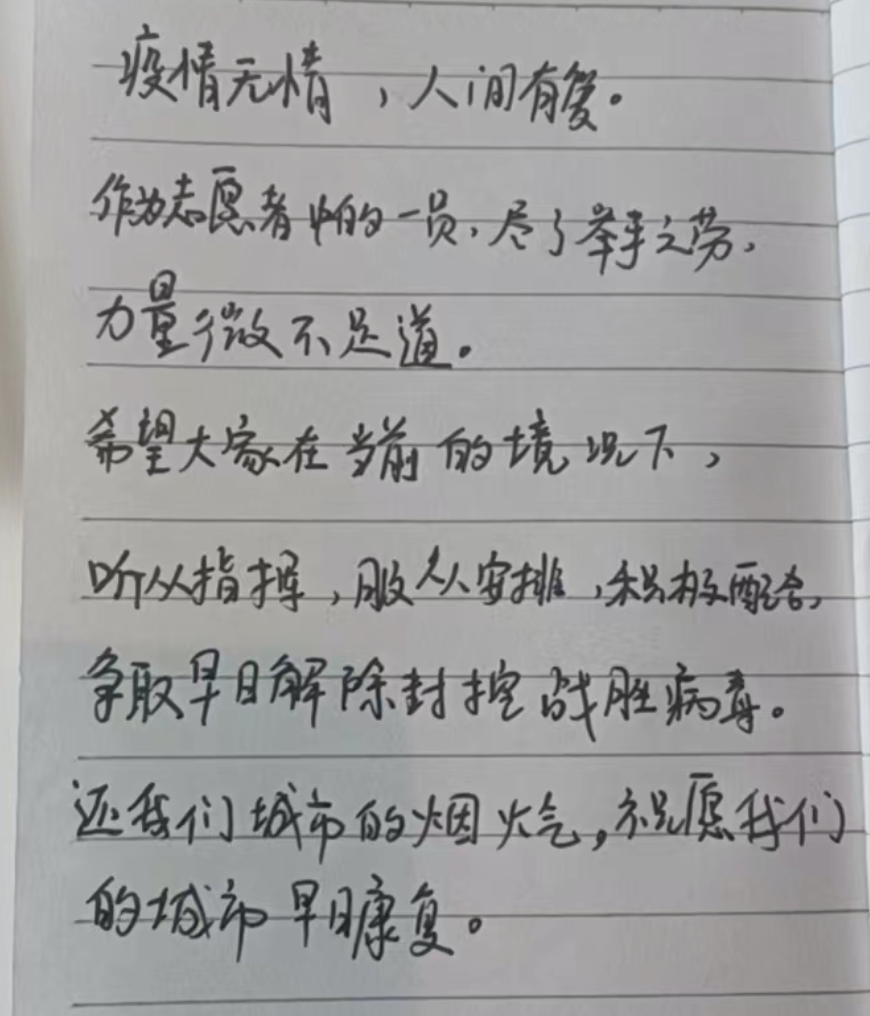 疫情无情，人间有爱。
作为志愿者中的一员，尽了举手之劳，
力量微不足道。
希望大家在当前的境况下，
听从指挥，服从安排，积极配合，
争取早日解除封控战胜病毒。
还我们城市的烟火气，祝愿我们
的城市早日康复。